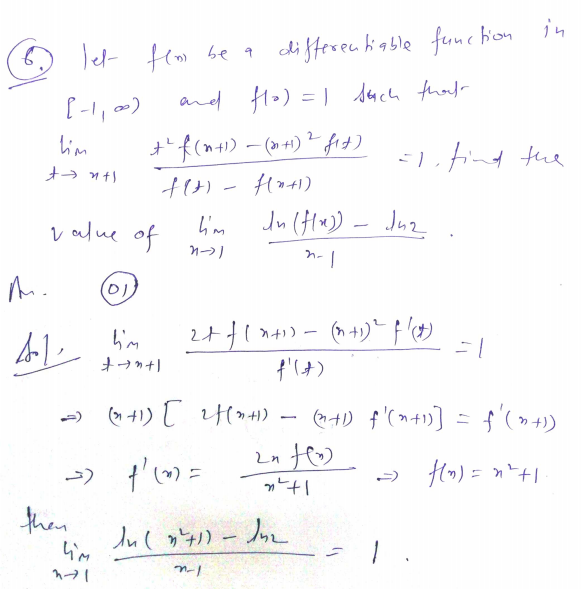 6. let f(x) be a differentiable function in
[-1, ∞) and f(0) = 1 such that
lim t→x+1 (t² f(x+1) - (x+1)² f(t)) / (f(t) - f(x+1)) = 1. find the
value of lim x→1 (ln(f(x)) - ln2) / (x-1) .
An. 01
Sol. lim t→x+1 (2t f(x+1) - (x+1)² f'(t)) / f'(t) = 1
⇒ (x+1) [ 2f(x+1) - (x+1) f'(x+1)] = f'(x+1)
⇒ f'(x) = 2x f(x) / (x²+1) ⇒ f(x) = x²+1
then
lim x→1 (ln(x²+1) - ln2) / (x-1) = 1 .